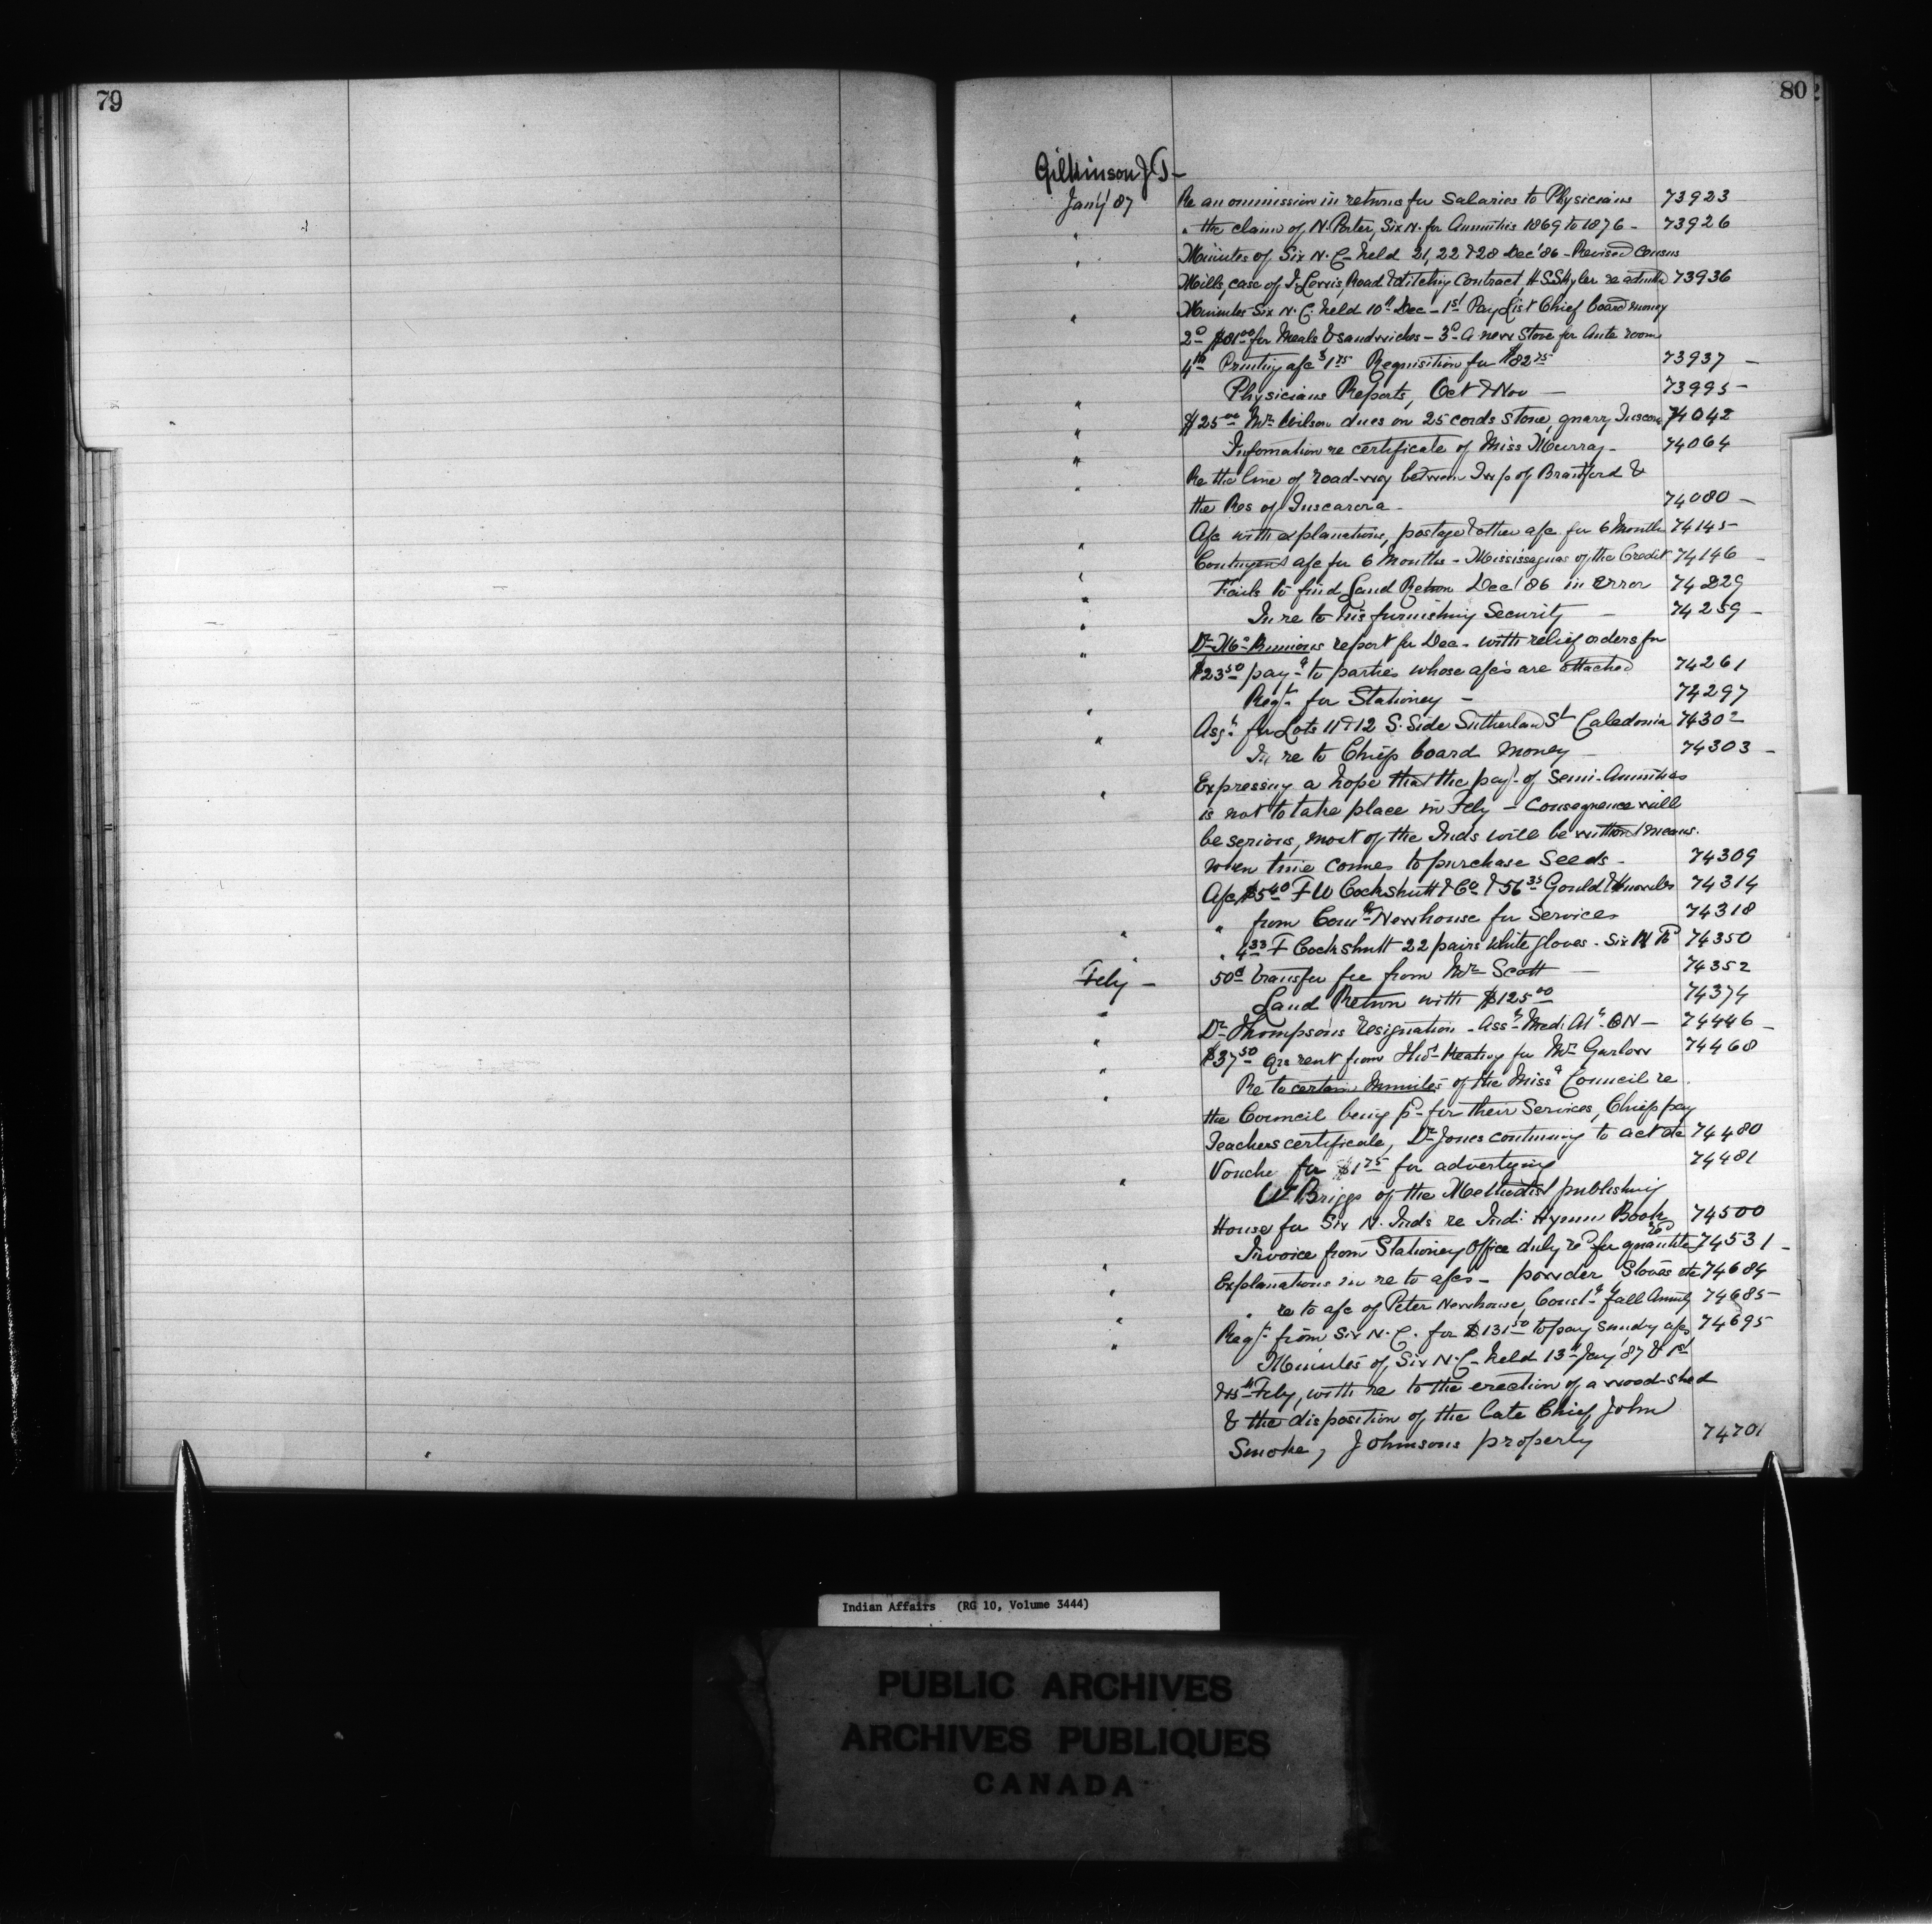 79
80
Gilkinson J T -
Jany '87 Re an ommission in returns for Salaries to Physicians 73923
" " the claim of N. Porter, Six N. for Annuities 1869 to 1876 - 73926
" Minutes of Six N. C - held 21, 22 & 28 Dec '86 - Revised Census
Mills, case of J. Lewis, Road & ditching Contract, H S Skyler re 73936
" Minutes Six N. C. held 10th Dec - 1st Pay List Chief board money
2d $81.00 for Meals & sandwiches - 3d A new Stove for Ante room
4th Printing a/c $1.75 Requisition for $82.75 73937 -
" Physicians Reports, Oct & Nov - 73995 -
" $25.00 Mr Wilson dues on 25 cords stone, quarry Tuscara 74042
" Information re certificate of Miss Murray - 74064
" Re the line of road-way between Twp of Brantford &
the Res of Tuscarora - 74080 -
" A/c with explanations, postage & other a/c for 6 Months 74145 -
" Contingent a/c for 6 Months - Mississaguas of the Credit 74146 -
" Fails to find Land Return Dec '86 in error 74229
" In re to his furnishing Security - 74259 -
" Dr report for Dec - with relief orders for
$23.50 payt to parties whose a/cs are attached 74261
" Reqn for Stationey - 74297
" Asst for Lots 11 & 12 S. Side Sutherland St Caledonia 74302
In re to Chiefs board money - 74303 -
" Expressing a hope that the payt of Semi-Annuities
is not to take place in Feby - Consequence will
be serious, most of the Inds will be without means.
when time comes to purchase Seeds - 74309
A/c $5.40 F W Cockshutt & Co & 56.35 Gould & Knowles 74314
" " from Comr Newhouse for Services 74318
" " 4.33 F Cockshutt 22 pairs white gloves - Six N 74350
Feby - 50c transfer fee from Mr Scott - 74352
" Land Return with $125.00 74374
" Dr Thompsons resignation - Asst Med. At - 6N - 74446 -
" $37.50 Qrs rent from for Mr Garlow 74468
" Re to certain Minutes of the Missa Council re
the Council being pd for their Services, Chiefs pay
Teachers certificate, Dr Jones continuing to act etc 74480
" Vouche for $1.75 for advertizing 74481
W Briggs of the Methodist publishing
House for Six N. Inds re Ind. Hymn Book 74500
" Invoice from Stationey Office duly re for quantite recd 74531 -
" Explanations in re to a/cs - powder Stoves etc 74684
" " re to a/c of Peter Newhouse, Const fall Annuity 74685 -
" Reqn from Six N. C. for $131.50 to pay sundry a/cs 74695
Minutes of Six N. C - held 13th Jany '87 & 1st
& 15th Feby, with re to the erection of a wood-shed
& the disposition of the late Chief John
Smoke, Johnsons property 74701
Indian Affairs (RG 10, Volume 3444)
PUBLIC ARCHIVES
ARCHIVES PUBLIQUES
CANADA